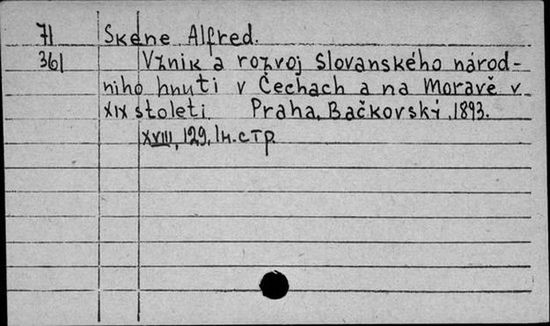 71 Skene Alfred.
361 Vznik a rozvoj slovanského národ-
niho hnuti v Čechach a na Moravě v
XIX stoleti Praha, Bačkovský, 1893.
XVIII, 129, 1н. стр.